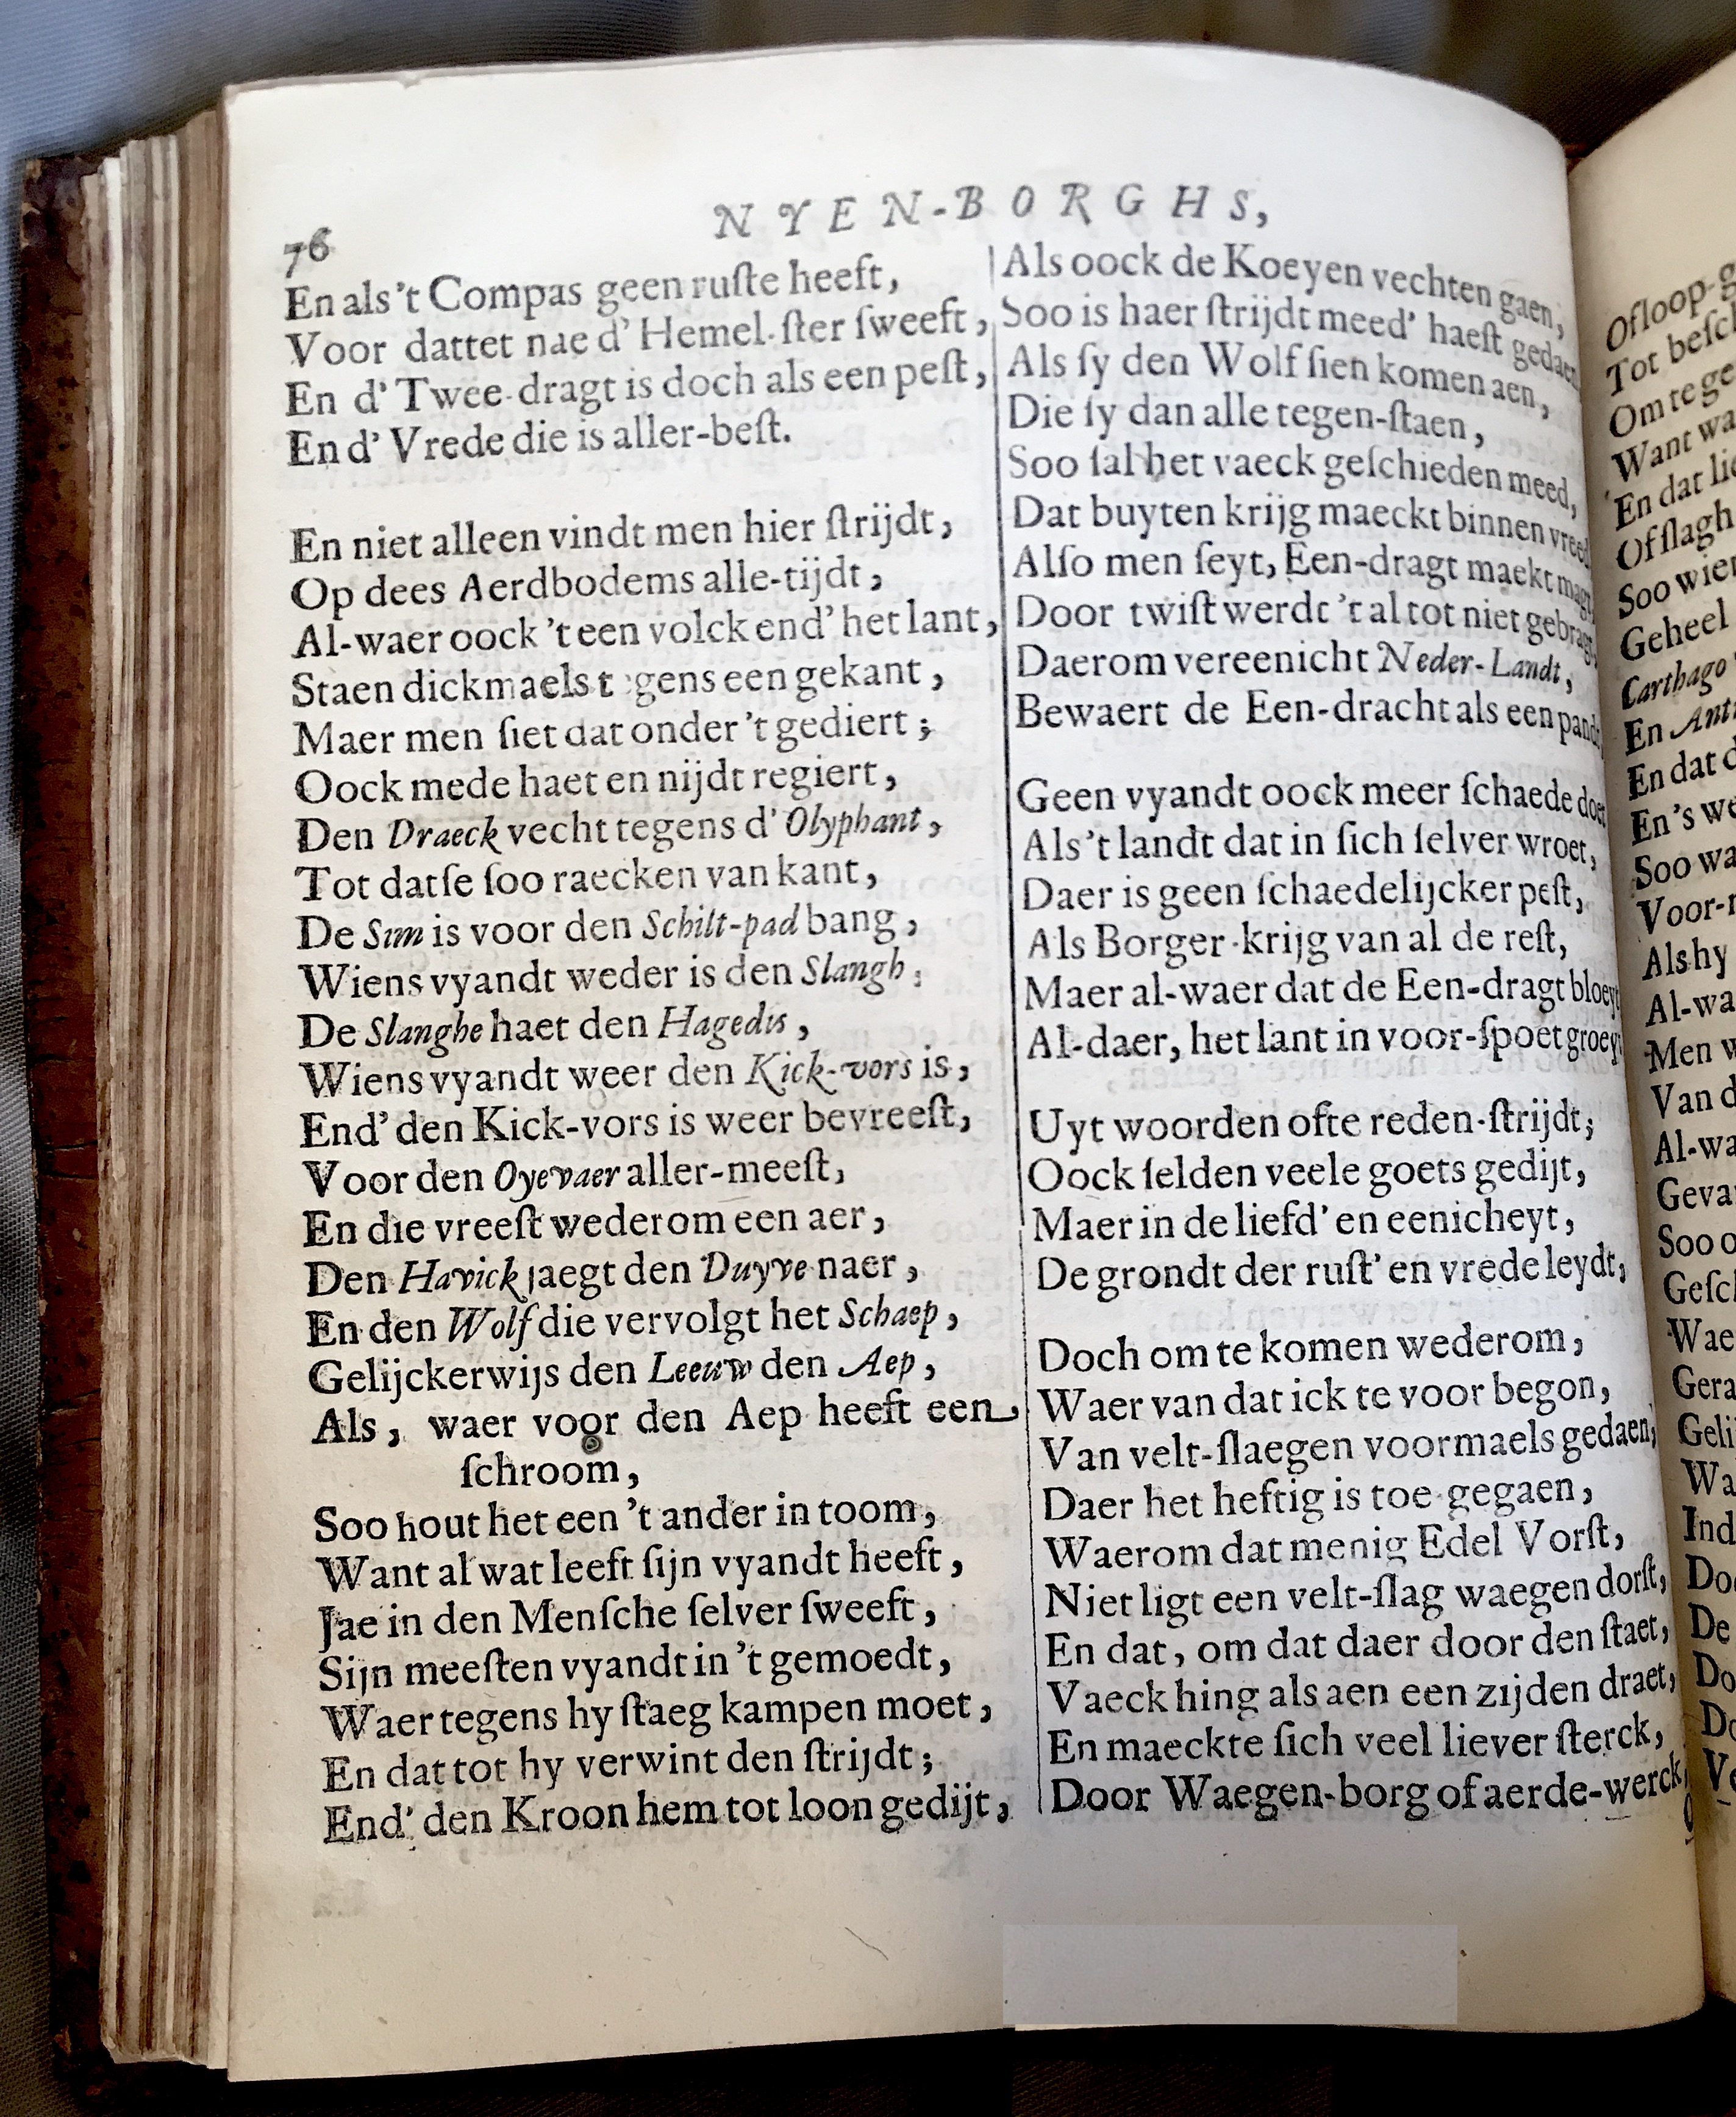 76
NYEN-BORGHS,
En als 't Compas geen ruſte heeft,
Voor dattet nae d' Hemel-ſter ſweeft,
En d' Twee-dragt is doch als een peſt,
En d' Vrede die is aller-beſt.
En niet alleen vindt men hier ſtrijdt,
Op dees Aerdbodems alle-tijdt,
Al-waer oock 't een volck end' het lant,
Staen dickmaels t gens een gekant,
Maer men ſiet dat onder 't gediert;
Oock mede haet en nijdt regiert,
Den Draeck vecht tegens d' Olyphant,
Tot datſe ſoo raecken van kant,
De Sim is voor den Schilt-pad bang,
Wiens vyandt weder is den Slangh;
De Slanghe haet den Hagedis,
Wiens vyandt weer den Kick-vors is,
End' den Kick-vors is weer bevreeſt,
Voor den Oyevaer aller-meeſt,
En die vreeſt wederom een aer,
Den Havick jaegt den Duyve naer,
En den Wolf die vervolgt het Schaep,
Gelijckerwijs den Leeuw den Aep,
Als, waer voor den Aep heeft een
ſchroom,
Soo hout het een 't ander in toom,
Want al wat leeft ſijn vyandt heeft,
Jae in den Menſche ſelver ſweeft,
Sijn meeſten vyandt in 't gemoedt,
Waer tegens hy ſtaeg kampen moet,
En dat tot hy verwint den ſtrijdt;
End' den Kroon hem tot loon gedijt,
Als oock de Koeyen vechten gaen,
Soo is haer ſtrijdt meed' haeſt gedaen
Als ſy den Wolf ſien komen aen,
Die ſy dan alle tegen-ſtaen,
Soo ſal het vaeck geſchieden meed,
Dat buyten krijg maeckt binnen vreed
Alſo men ſeyt, Een-dragt maekt magt,
Door twiſt werdt 't al tot niet gebragt,
Daerom vereenicht Neder-Landt,
Bewaert de Een-dracht als een pandt
Geen vyandt oock meer ſchaede doet
Als 't landt dat in ſich ſelver wroet,
Daer is geen ſchaedelijcker peſt,
Als Borger-krijg van al de reſt,
Maer al-waer dat de Een-dragt bloeyt
Al-daer, het lant in voor-ſpoet groeyt
Uyt woorden ofte reden-ſtrijdt;
Oock ſelden veele goets gedijt,
Maer in de liefd' en eenicheyt,
De grondt der ruſt' en vrede leydt,
Doch om te komen wederom,
Waer van dat ick te voor begon,
Van velt-ſlaegen voormaels gedaen,
Daer het heftig is toe-gegaen,
Waerom dat menig Edel Vorſt,
Niet ligt een velt-ſlag waegen dorſt,
En dat, om dat daer door den ſtaet,
Vaeck hing als aen een zijden draet,
En maeckte ſich veel liever ſterck,
Door Waegen-borg of aerde-werck,
Of loop-g
Tot beſch
Om te ge
Want wa
En dat lie
Of ſlagh
Soo wier
Geheel
Carthago
En Ant
En dat d
En's we
Soo wa
Voor-r
Als hy
Al-wa
Men w
Van d
Al-wa
Geva
Soo o
Geſcl
Wae
Gera
Geli
Wa
Ind
Do
De
Do
Do
Ve